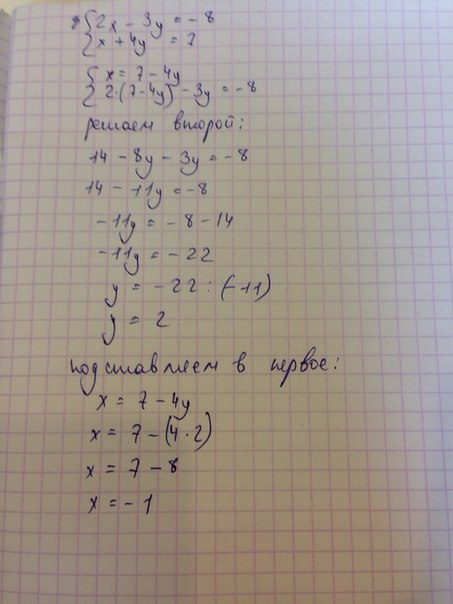 {2x - 3y = -8
{x + 4y = 7
{x = 7 - 4y
{2·(7-4y) - 3y = -8
решаем второй:
14 - 8y - 3y = -8
14 - 11y = -8
-11y = -8 - 14
-11y = -22
y = -22 : (-11)
y = 2
подставляем в первое:
x = 7 - 4y
x = 7 - (4·2)
x = 7 - 8
x = -1